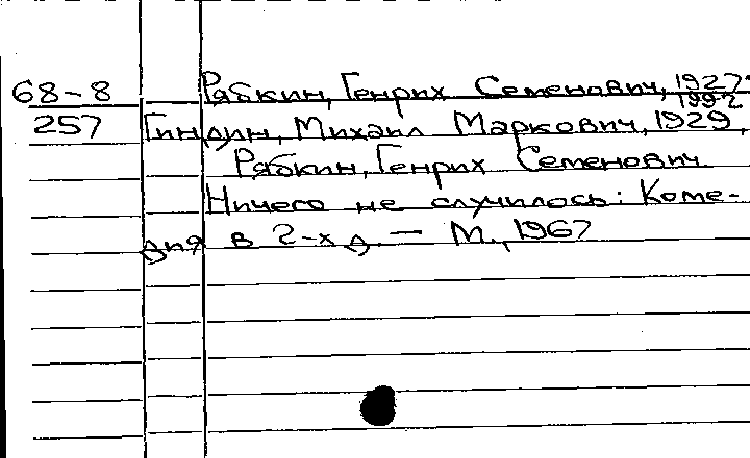 68-8 Рябкин, Генрих Семенович, 1927-
1992
257 Гиндин, Михаил Маркович, 1929,
Рябкин, Генрих Семенович
Ничего не случилось: Коме-
дия в 2-х д. — М., 1967